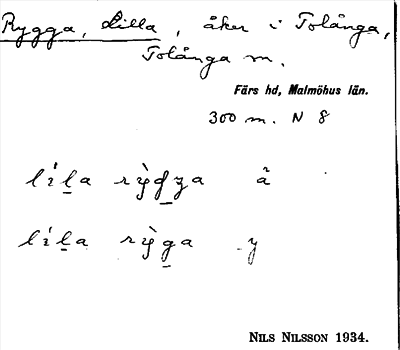 Rygga, Lilla, åker i Tolånga,
Tolånga m.
Färs hd, Malmöhus län.
300 m. N 8
lí̱la rỳḏɟa å
lí̱la rỳg̱a y
NILS NILSSON 1934.